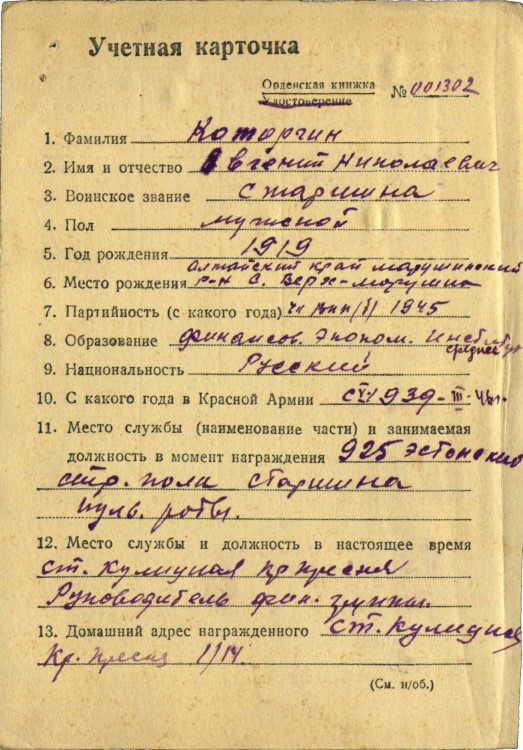 Учетная карточка
Орденская книжка
Удостоверение
№ 001302
1. Фамилия Каторгин
2. Имя и отчество Евгений Николаевич
3. Воинское звание Старшина
4. Пол мужской
5. Год рождения 1919
алтайский край марушинский
6. Место рождения р-н с. Верх-марушка
7. Партийность (с какого года) чл вкп/б/ 1945
8. Образование финансов. Эконом.
средней
9. Национальность Русский
10. С какого года в Красной Армии с VI 1939 - III - 46 г.
11. Место службы (наименование части) и занимаемая
должность в момент награждения 925 Эстонский
стр. полк старшина
пуль. роты.
12. Место службы и должность в настоящее время
ст. Кулицкая
Руководитель фин. группы.
13. Домашний адрес награжденного ст. Кулицкая
Кр. Пресня 1/14
(См. н/об.)